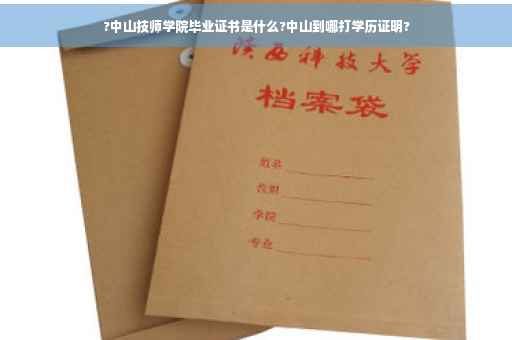 ?中山技师学院毕业证书是什么?中山到哪打学历证明?
陕西科技大学
档案袋
姓名
学院
专业